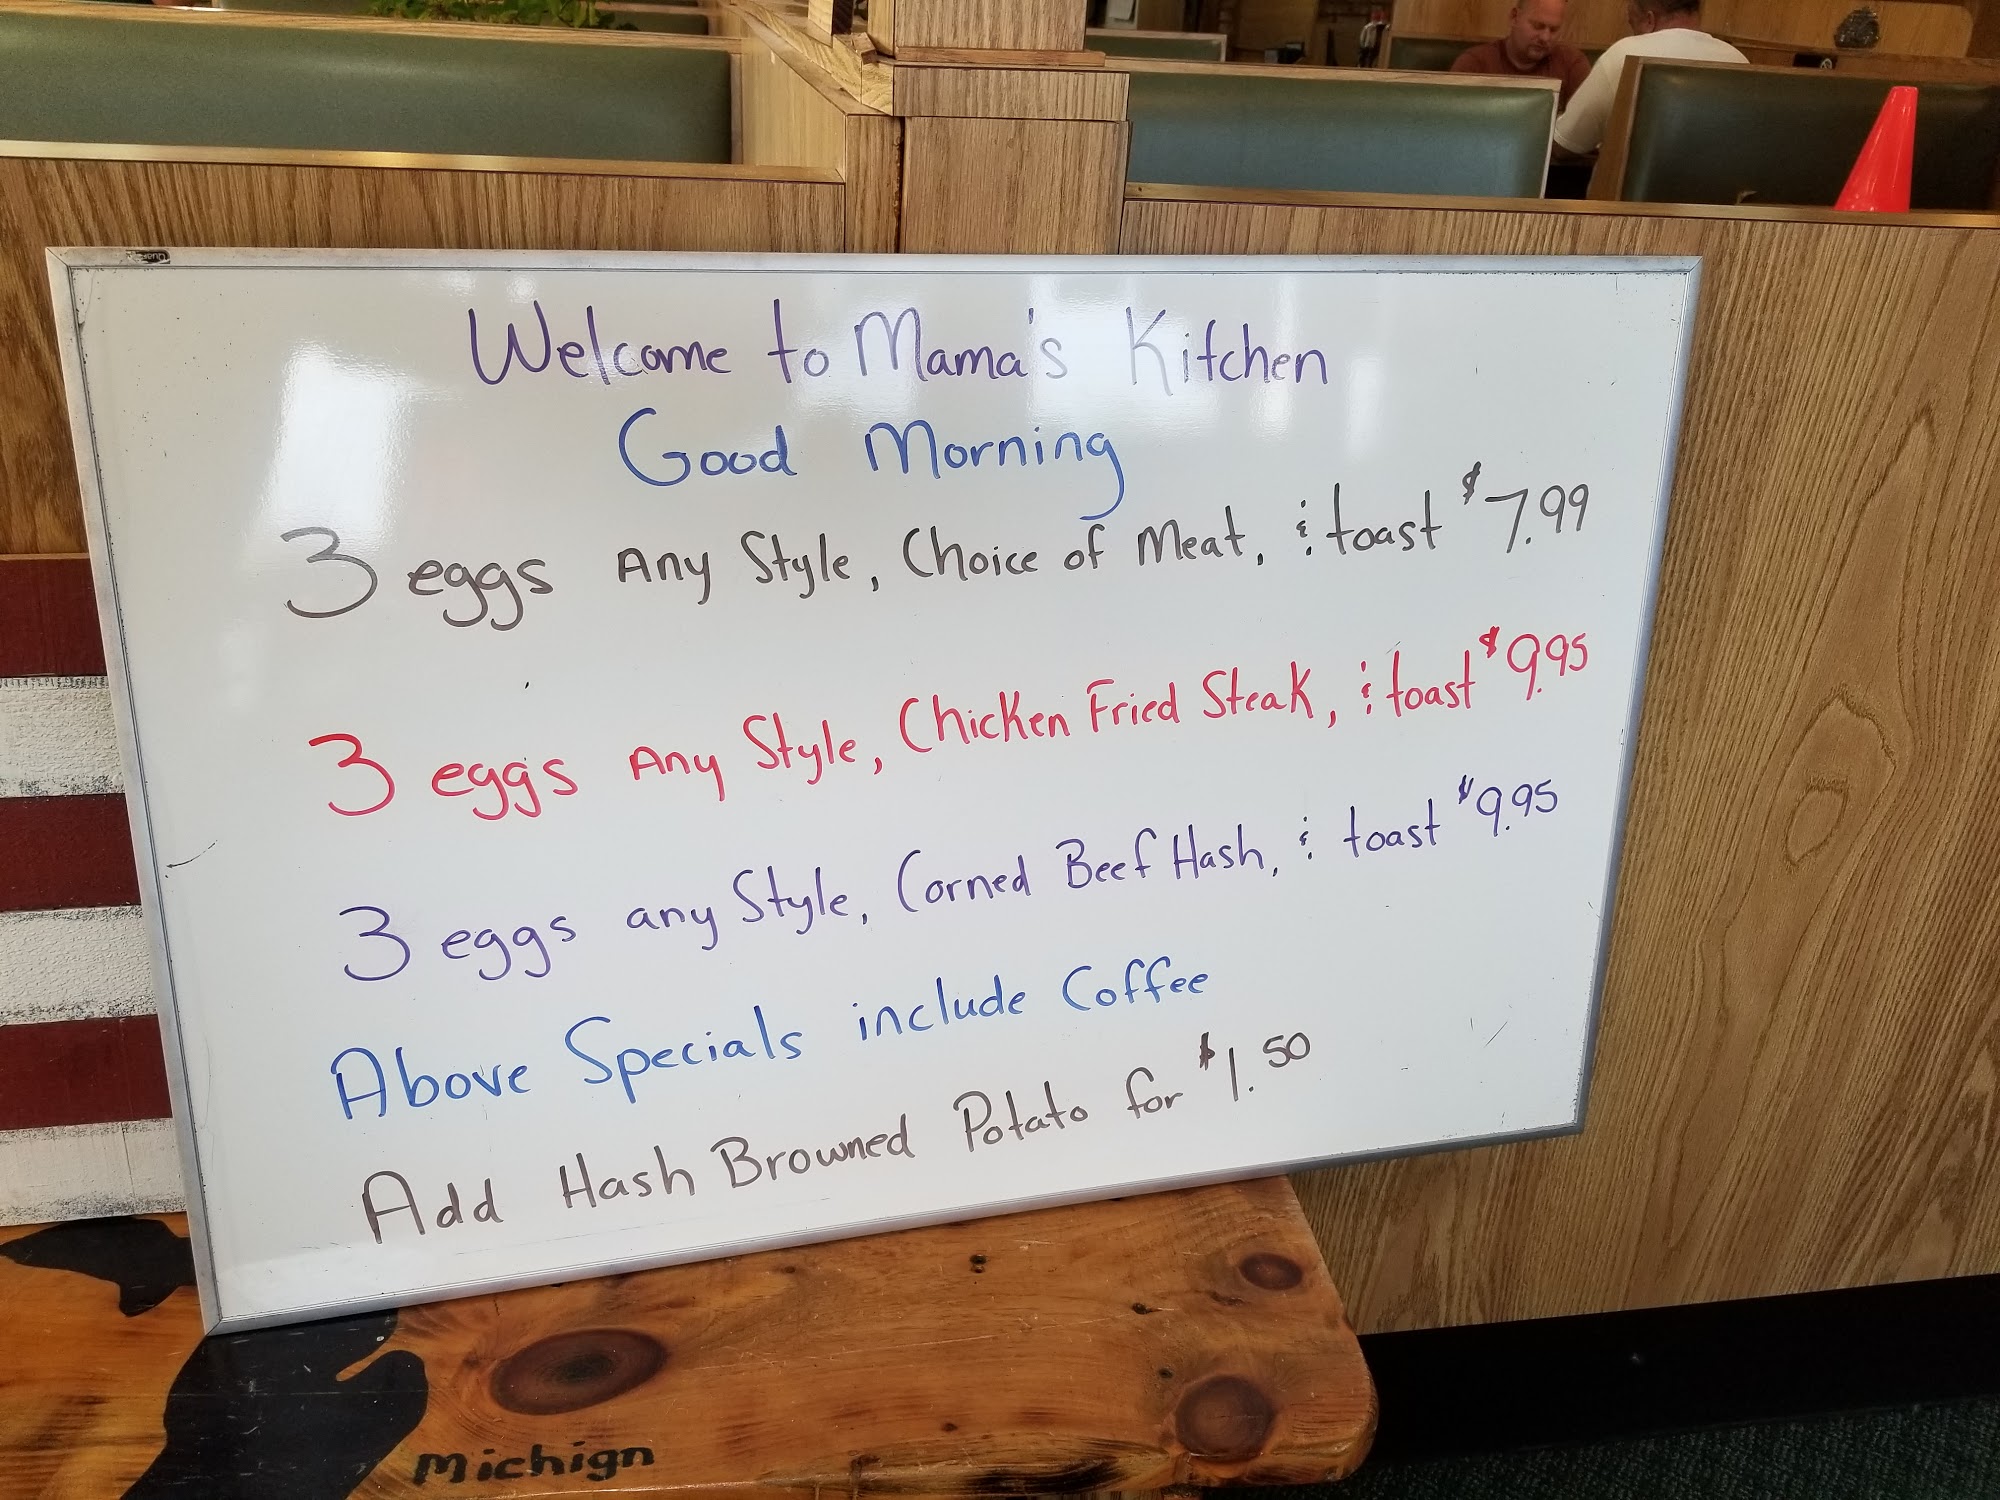 Welcome to Mama's Kitchen
Good Morning
3 eggs Any Style, Choice of Meat, & toast $7.99
3 eggs Any Style, Chicken Fried Steak, & toast $9.95
3 eggs any Style, Corned Beef Hash, & toast $9.95
Above Specials include Coffee
Add Hash Browned Potato for $1.50
Michign